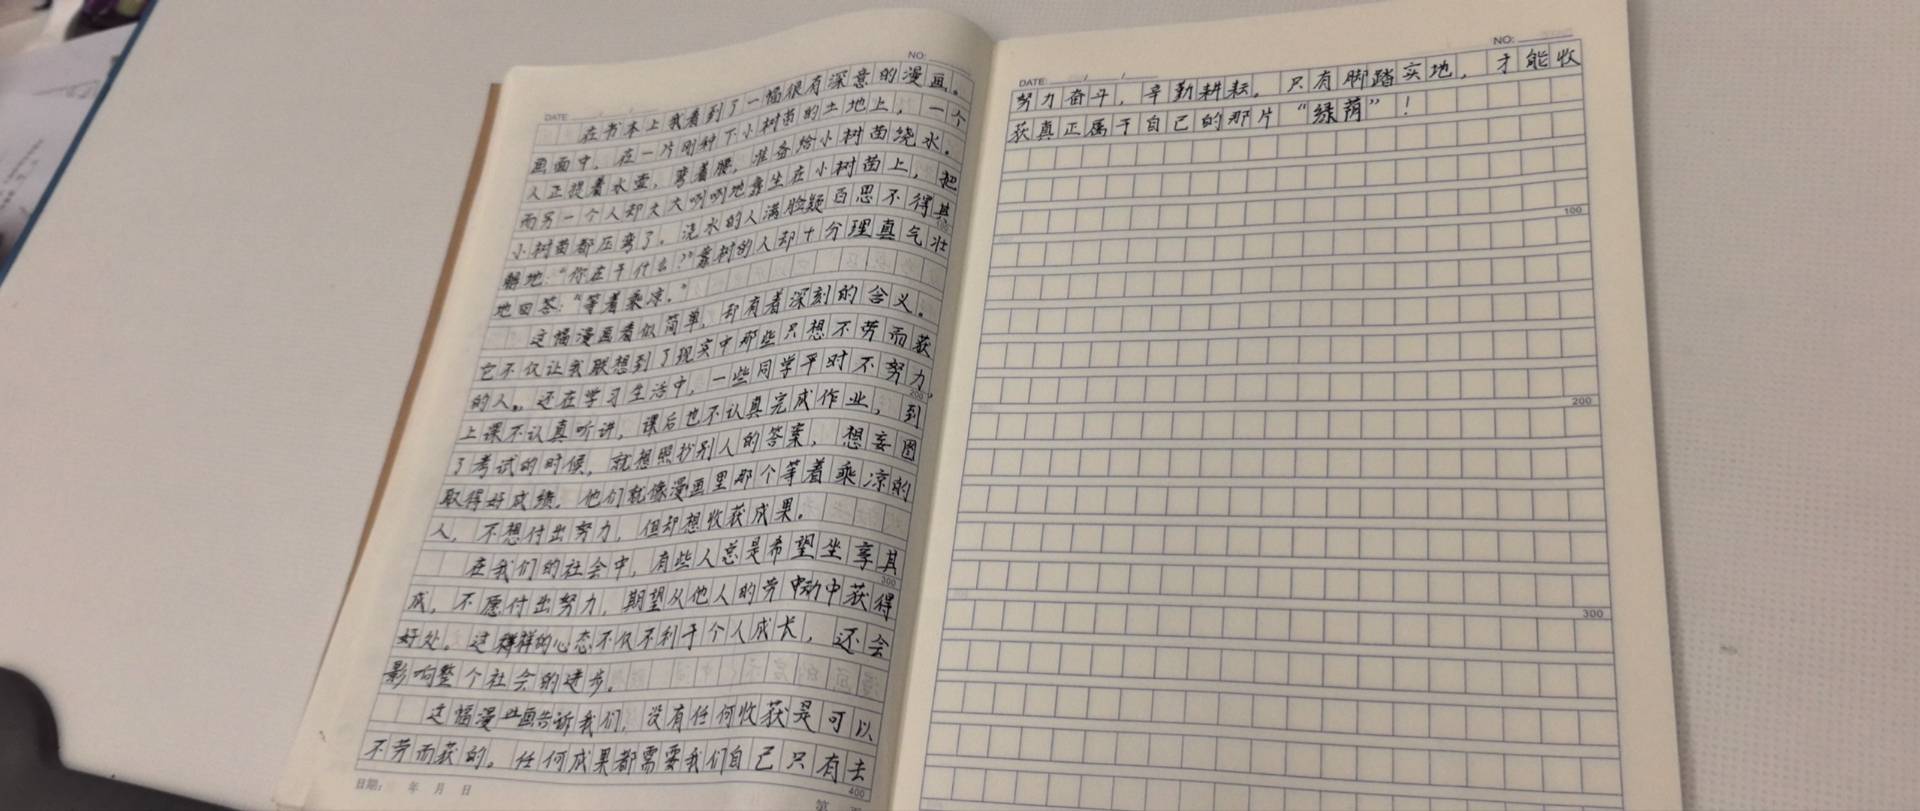 NO:
DATE
在书本上我看到了一幅很有深意的漫画。
画面中，在一片刚种下小树苗的土地上，一个
人正提着水壶，弯着腰，准备给小树苗绕水。
而另一个人却大大咧咧地靠坐在小树苗上，把
小树苗都压弯了。浇水的人满脸疑百思不得其
解地：“你在干什么？”靠树的人却十分理真气壮
地回答：“等着乘凉。”
这幅漫画看似简单，却有着深刻的含义。
它不仅让我联想到了现实中那些只想不劳而获
的人。还在学习生活中，一些同学平时不努力，
上课不认真听讲，课后也不认真完成作业，到
了考试的时候，就想照抄别人的答案，想妄图
取得好成绩。他们就像漫画里那个等着乘凉的
人，不想付出努力，但却想收获成果。
在我们的社会中，有些人总是希望坐享其
成，不愿付出努力，期望从他人的劳动中获得
好处。这样的心态不仅不利于个人成长，还会
影响整个社会的进步。
这幅漫画告诉我们，没有任何收获是可以
不劳而获的。任何成果都需要我们自己只有去
200
300
400
日期： 年 月 日
第
NO:
DATE: / /
努力奋斗，辛勤耕耘。只有脚踏实地，才能收
获真正属于自己的那片“绿荫”！
100
200
300